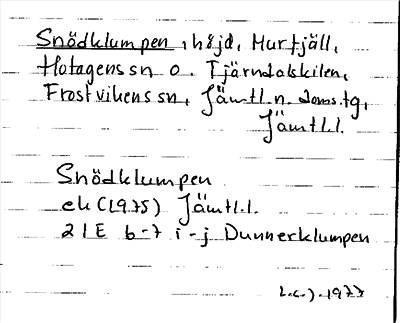 Snödklumpen, höjd, Murfjäll,
Hotagens sn o. Tjärndalskilen,
Frostvikens sn, Jämtl. n. doms.tg,
Jämtl.l.
Snödklumpen
ek (1975) Jämtl.l.
21E 6-7 i-j Dunnerklumpen
1977